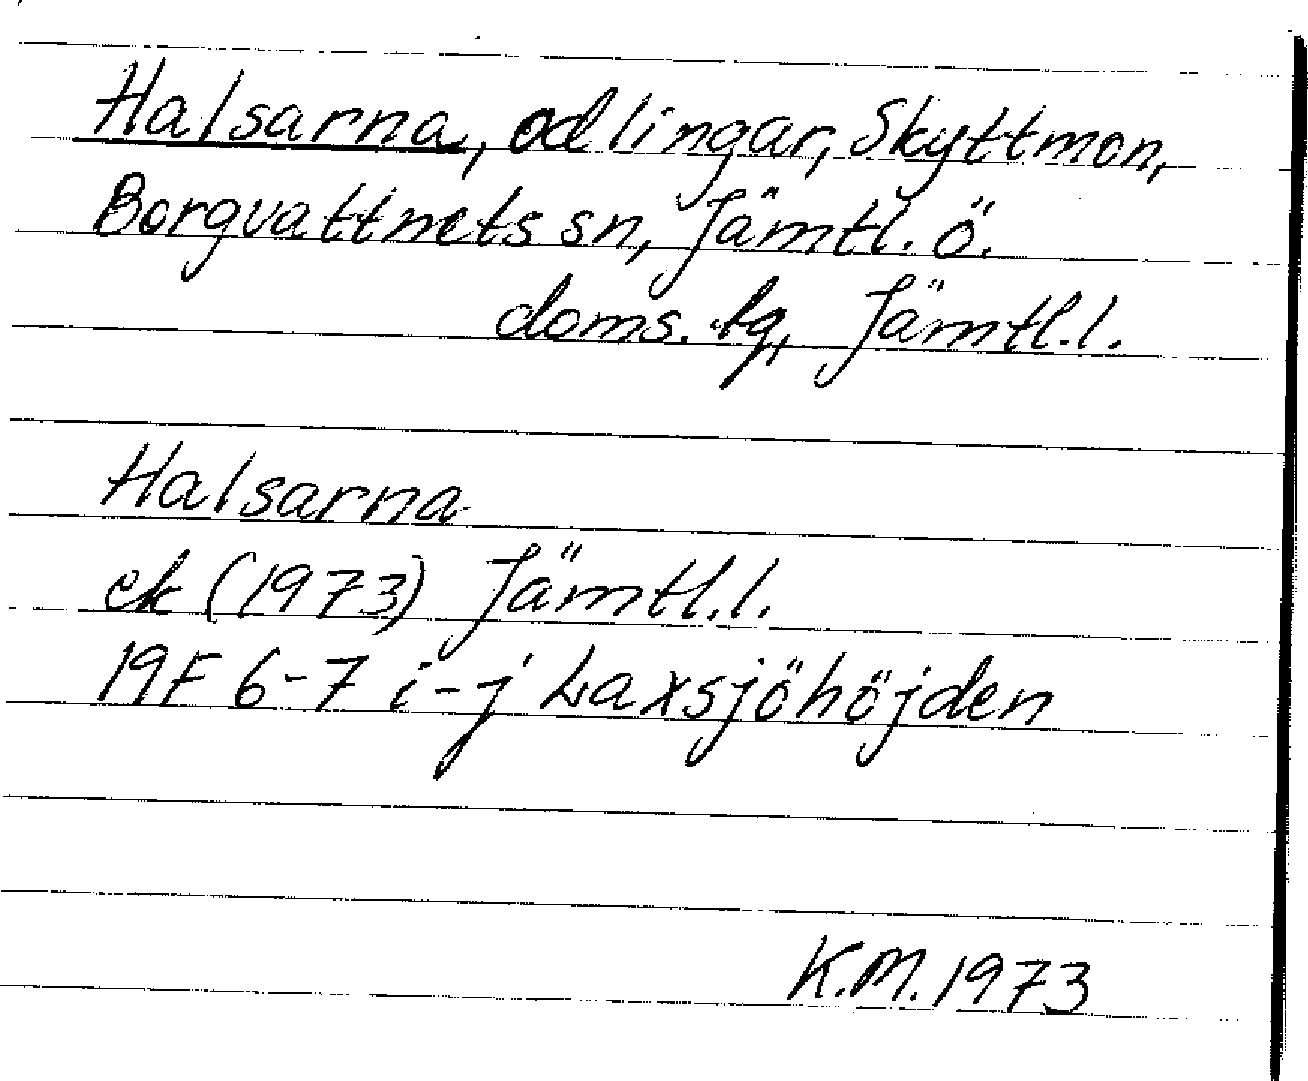 Halsarna, odlingar, Skyttmon,
Borgvattnets sn, Jämtl. ö.
doms. tg, Jämtl. l.
Halsarna
ek (1973) Jämtl. l.
19F 6-7 i-j Laxsjöhöjden
K.M. 1973